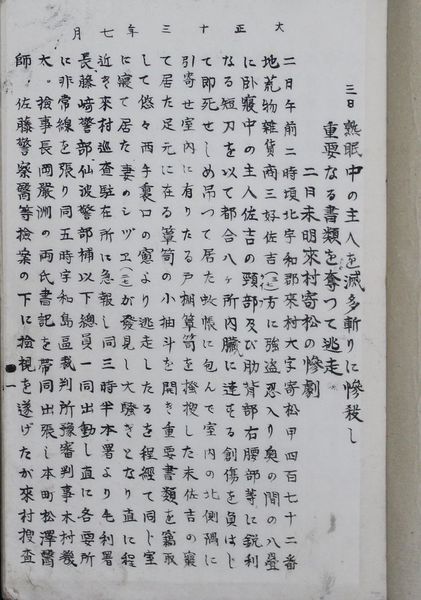 大正十三年七月
三日 熟眠中の主人を滅多斬りに惨殺し
重要なる書類を奪つて逃走
二日未明來村寄松の惨劇
二日午前二時頃北宇和郡來村大字寄松甲四百七十二番
地荒物雜貨商三好佐吉方に強盗忍入り奥の間の八畳
に臥寢中の主人佐吉の頸部及び肋背部右腰部等に鋭利
なる短刀を以て都合八ヶ所内臓に達する創傷を負はし
て即死せしめ吊つて居た蚊帳に包んで室内の北側隅に
引寄せ室内に有りたる戸棚箪笥を搜換した末佐吉の寢
て居た足元に在る箪笥の小抽斗を開き重要書類を竊取
して悠々西手裏口の窓より逃走したるを程經て同じ室
に寢て居た妻のシヅヱが發見し大騒ぎとなり直に程
近き來村巡査駐在所に急報し同三時半本署より毛利署
長藤﨑警部仙波警部補以下總員一同出動し直に各要所
に非常線を張り同五時宇和島區裁判所豫審判事木村幾
太。檢事長岡嚴洲の両氏書記を帶同出張し本町松澤醫
師。佐藤警察醫等檢案の下に檢視を遂げたが來村搜査
一